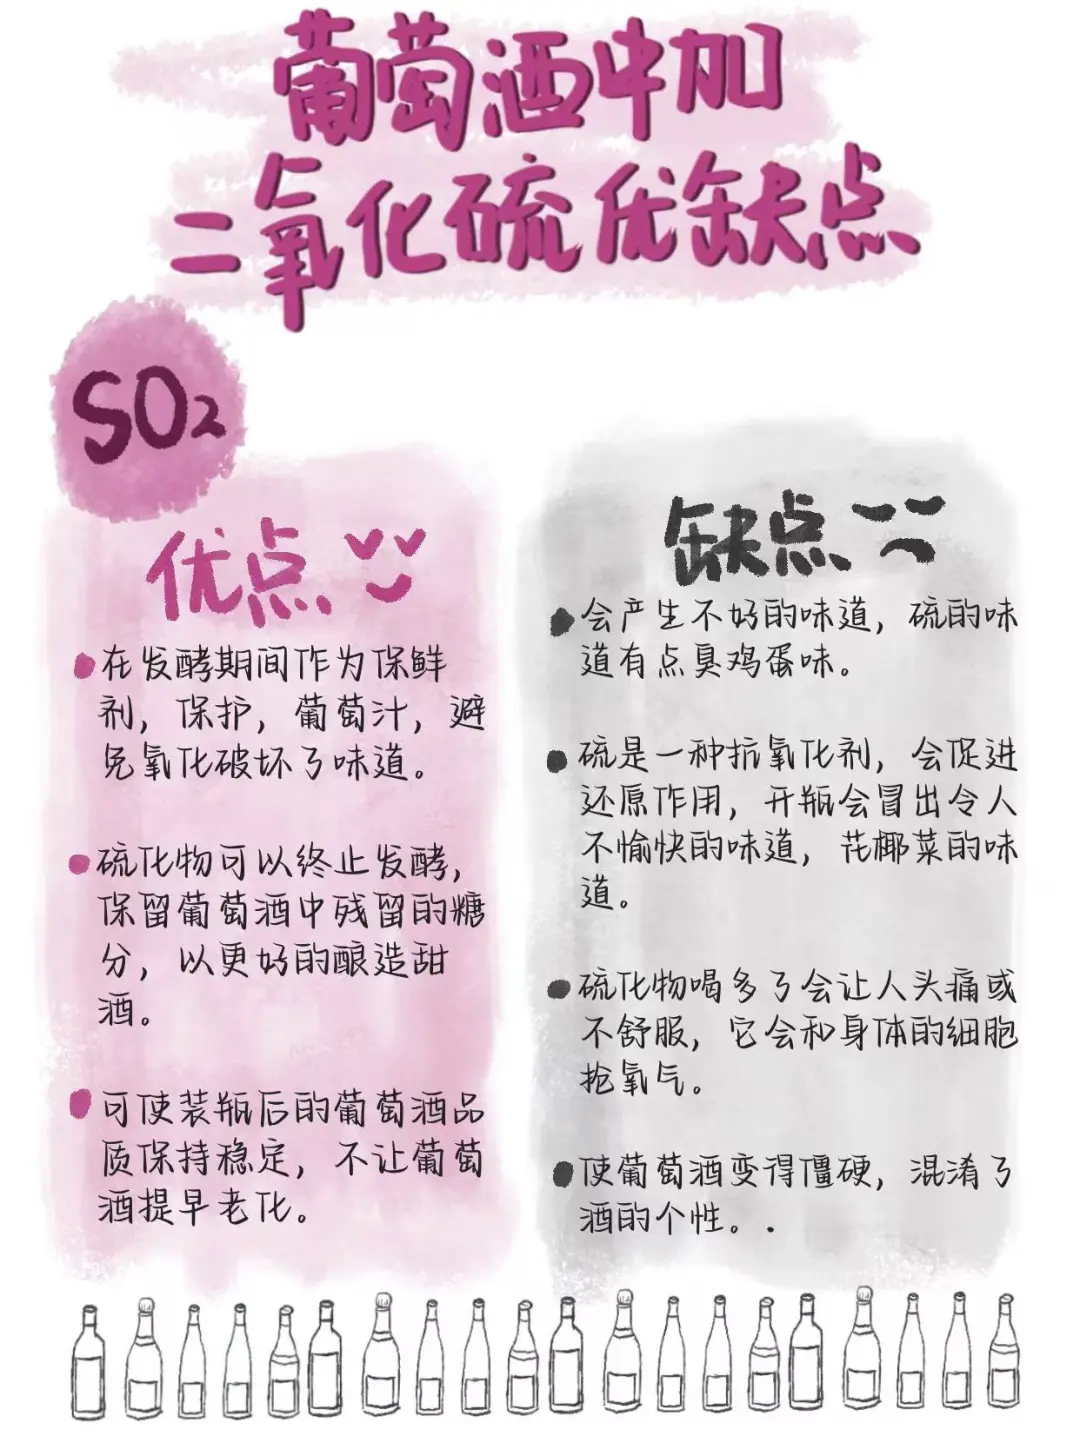 葡萄酒中加
二氧化硫优缺点
SO₂
优点
在发酵期间作为保鲜
剂，保护，葡萄汁，避
免氧化破坏了味道。
硫化物可以终止发酵，
保留葡萄酒中残留的糖
分，以更好的酿造甜
酒。
可使装瓶后的葡萄酒品
质保持稳定，不让葡萄
酒提早老化。
缺点
会产生不好的味道，硫的味
道有点臭鸡蛋味。
硫是一种抗氧化剂，会促进
还原作用，开瓶会冒出令人
不愉快的味道，花椰菜的味
道。
硫化物喝多了会让人头痛或
不舒服，它会和身体的细胞
抢氧气。
使葡萄酒变得僵硬，混淆了
酒的个性。.